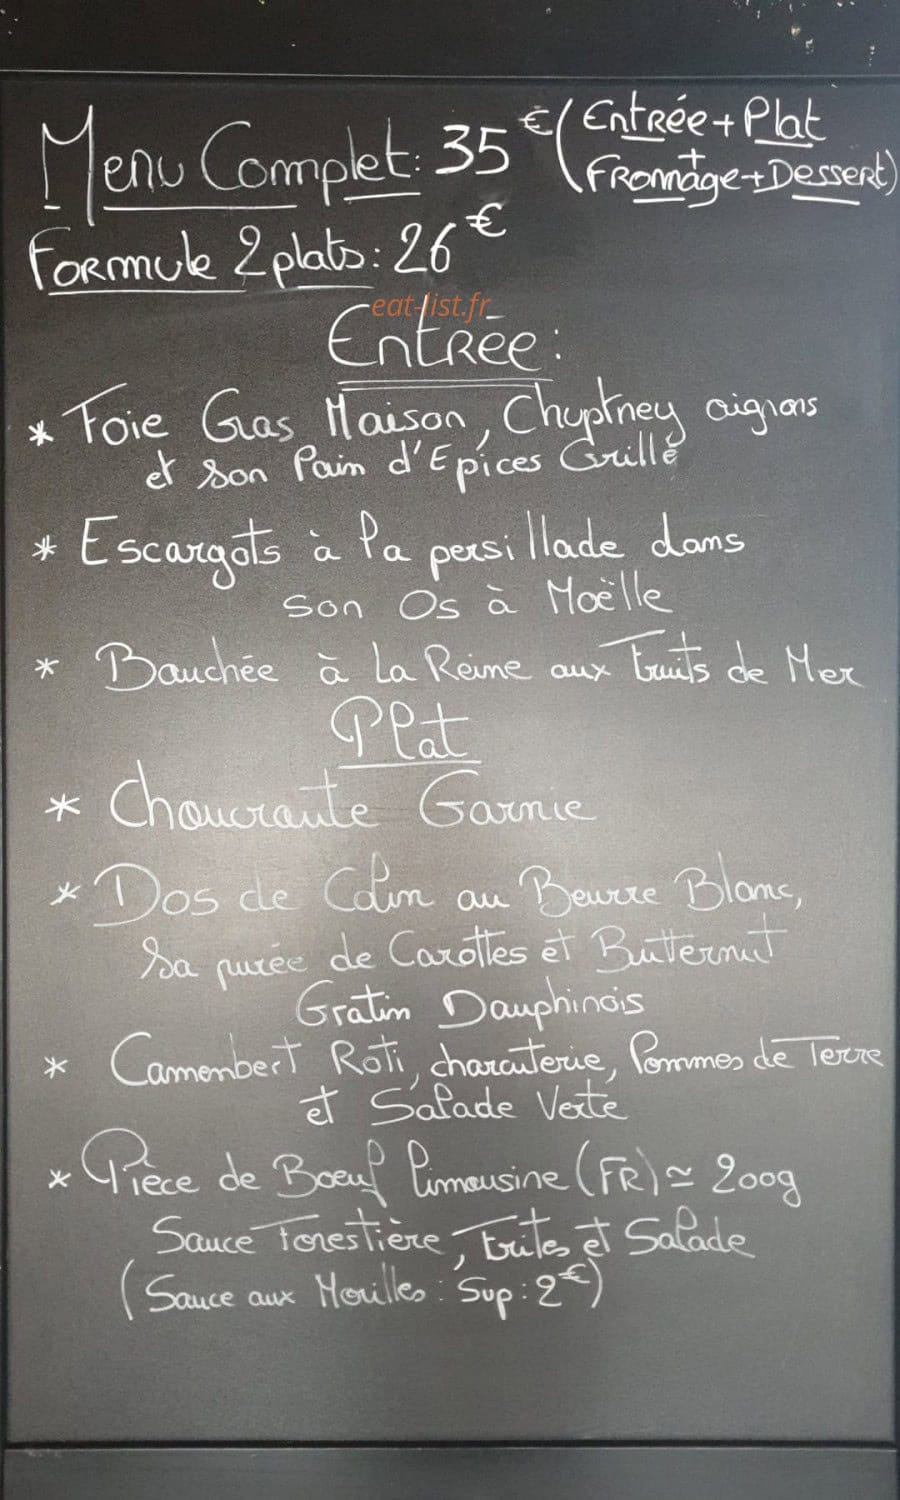 Menu Complet: 35€ (Entrée + Plat
+ Fromage + Dessert)
Formule 2 plats: 26€
eat-list.fr
Entrée:
* Foie Gras Maison, Chuptney oignons
et son Pain d'Epices Grillé
* Escargots à la persillade dans
son Os à Moëlle
* Bouchée à La Reine aux Fruits de Mer
Plat
* Choucroute Garnie
* Dos de Colin au Beurre Blanc,
Sa purée de Carottes et Butternut
Gratin Dauphinois
* Camembert Roti, charcuterie, Pommes de Terre
et Salade Verte
* Pièce de Boeuf Limousine (FR) ≃ 200g
Sauce Forestière, Frites et Salade
(Sauce aux Morilles: Sup: 2€)